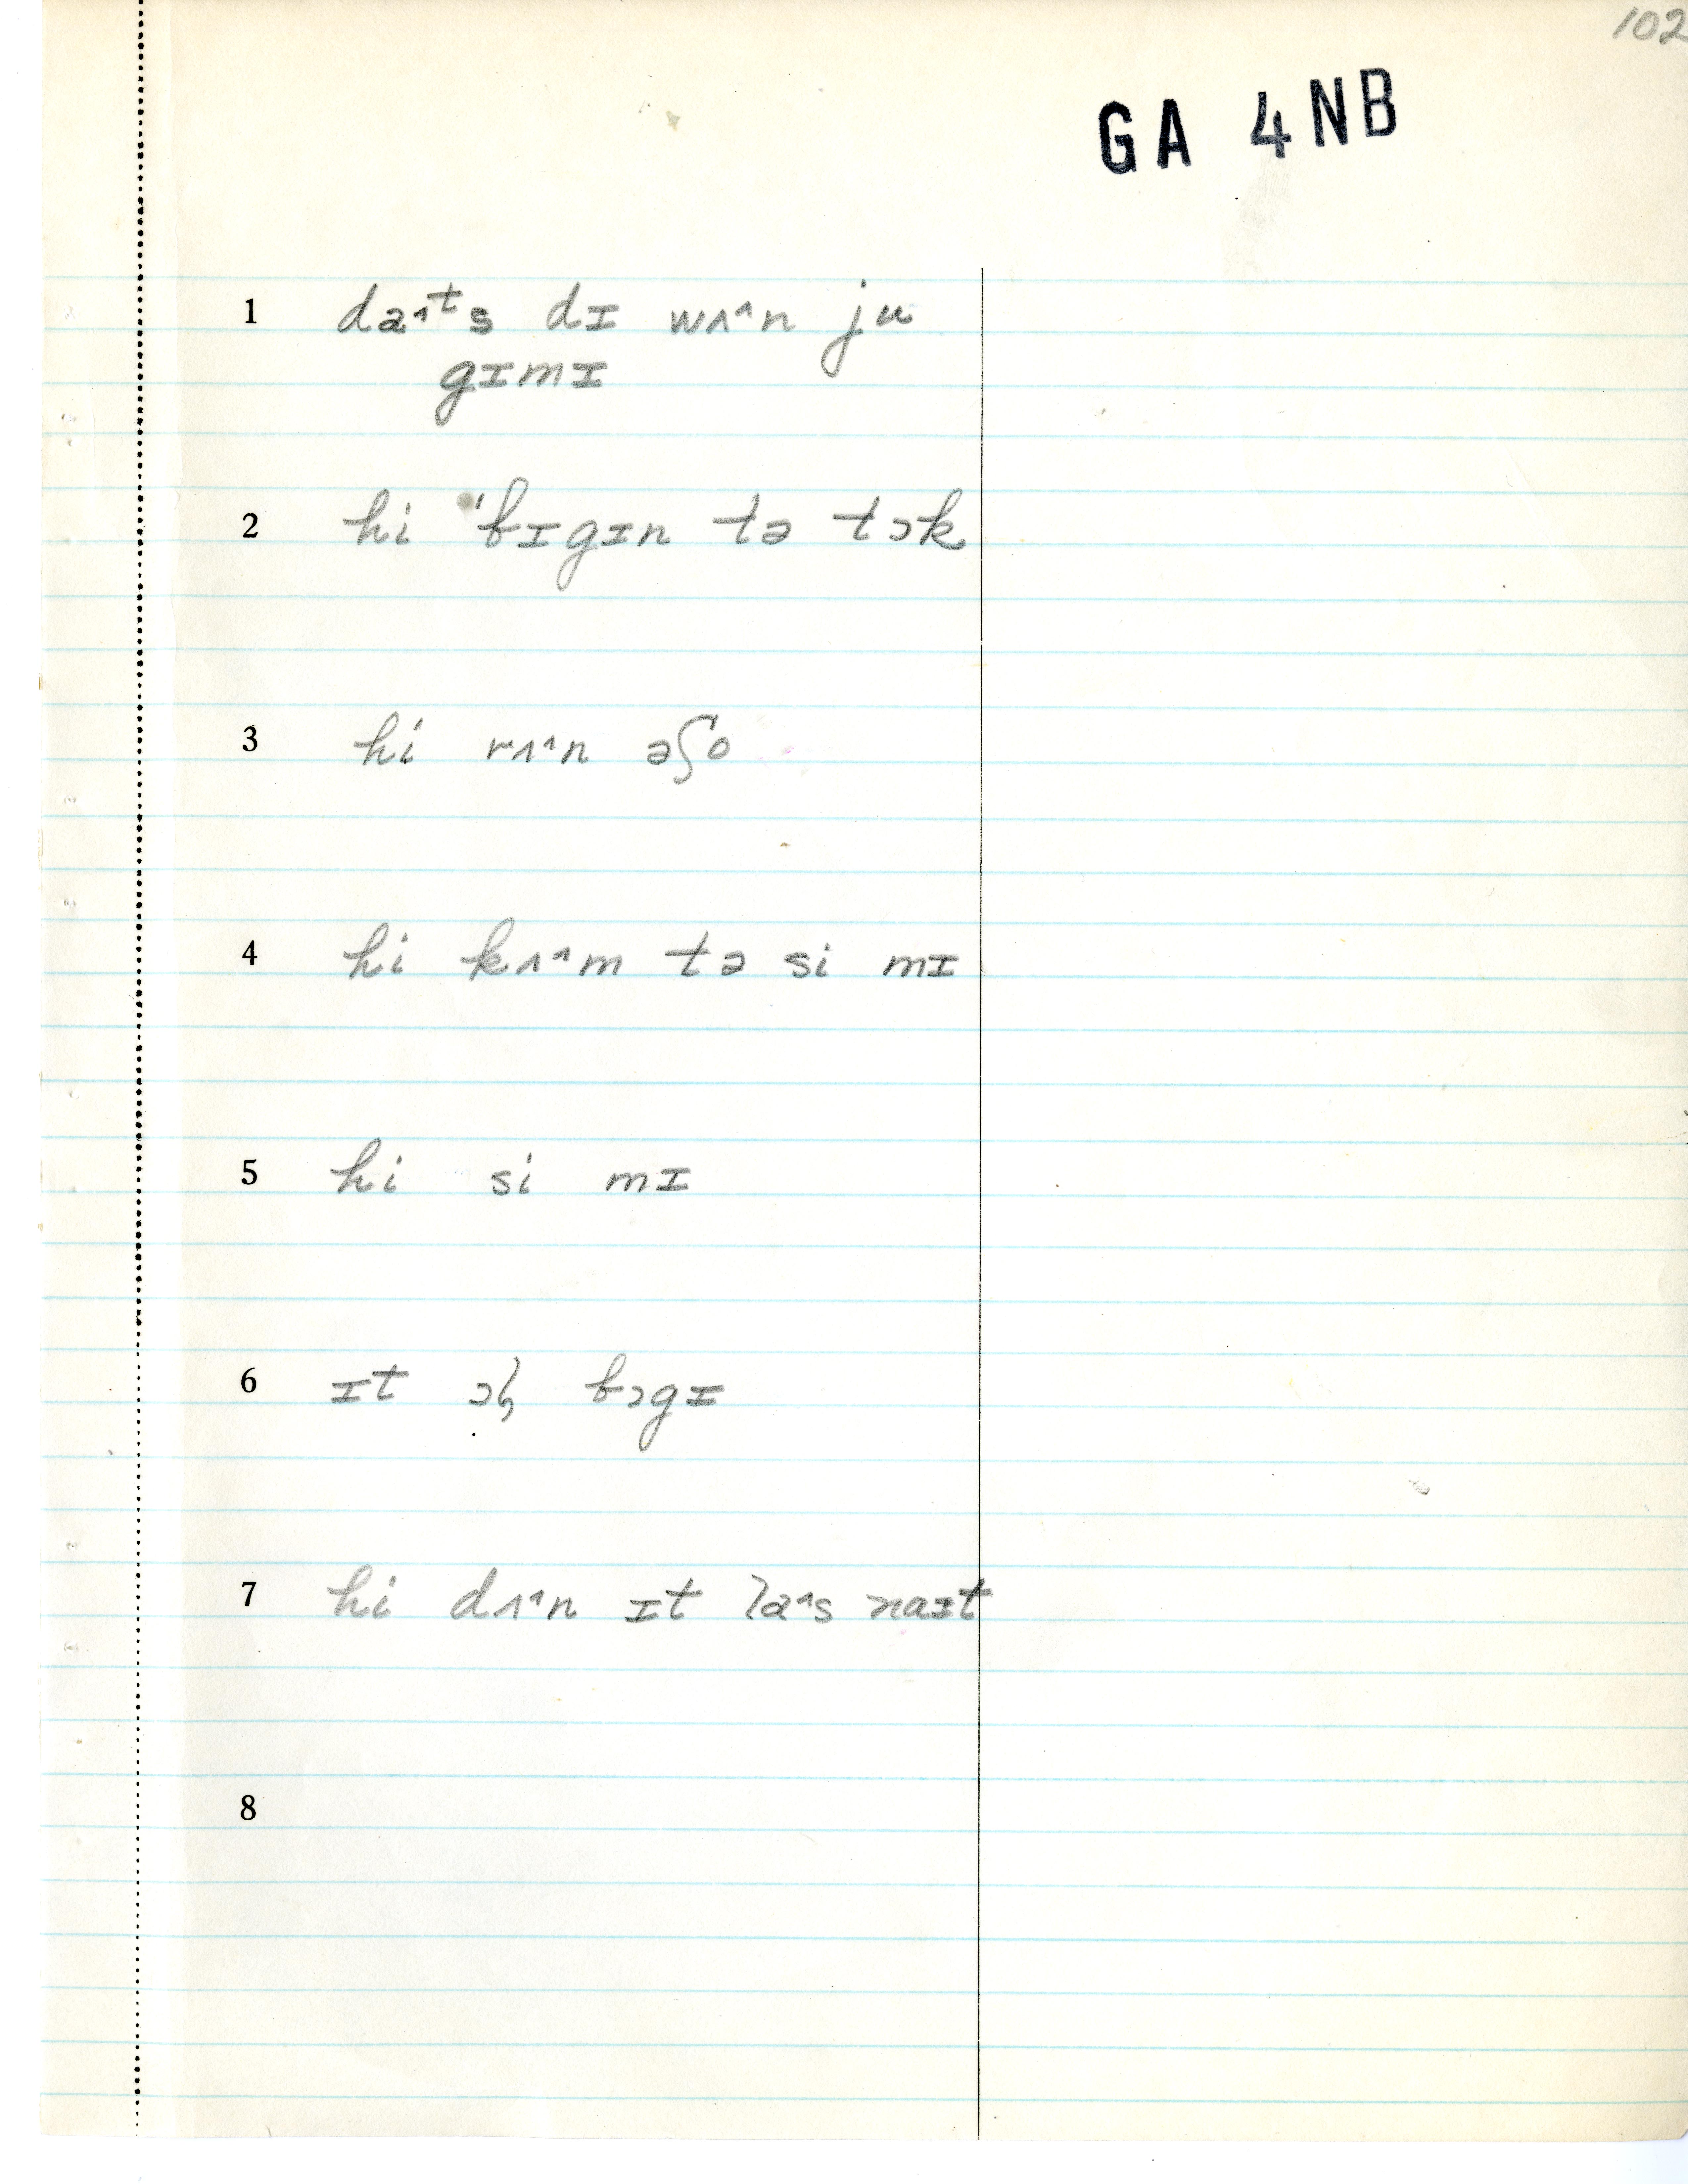 102
GA 4NB
1 da^ᵗs dɪ wʌ^^n ju
gɪmɪ
2 hi 'bɪgɪn tə tɔk
3 hi rʌ^^n əʃo
4 hi kʌ^^m tə si mɪ
5 hi si mɪ
6 ɪt bɔgɪ
7 hi dʌ^^n ɪt la^s naɪt
8